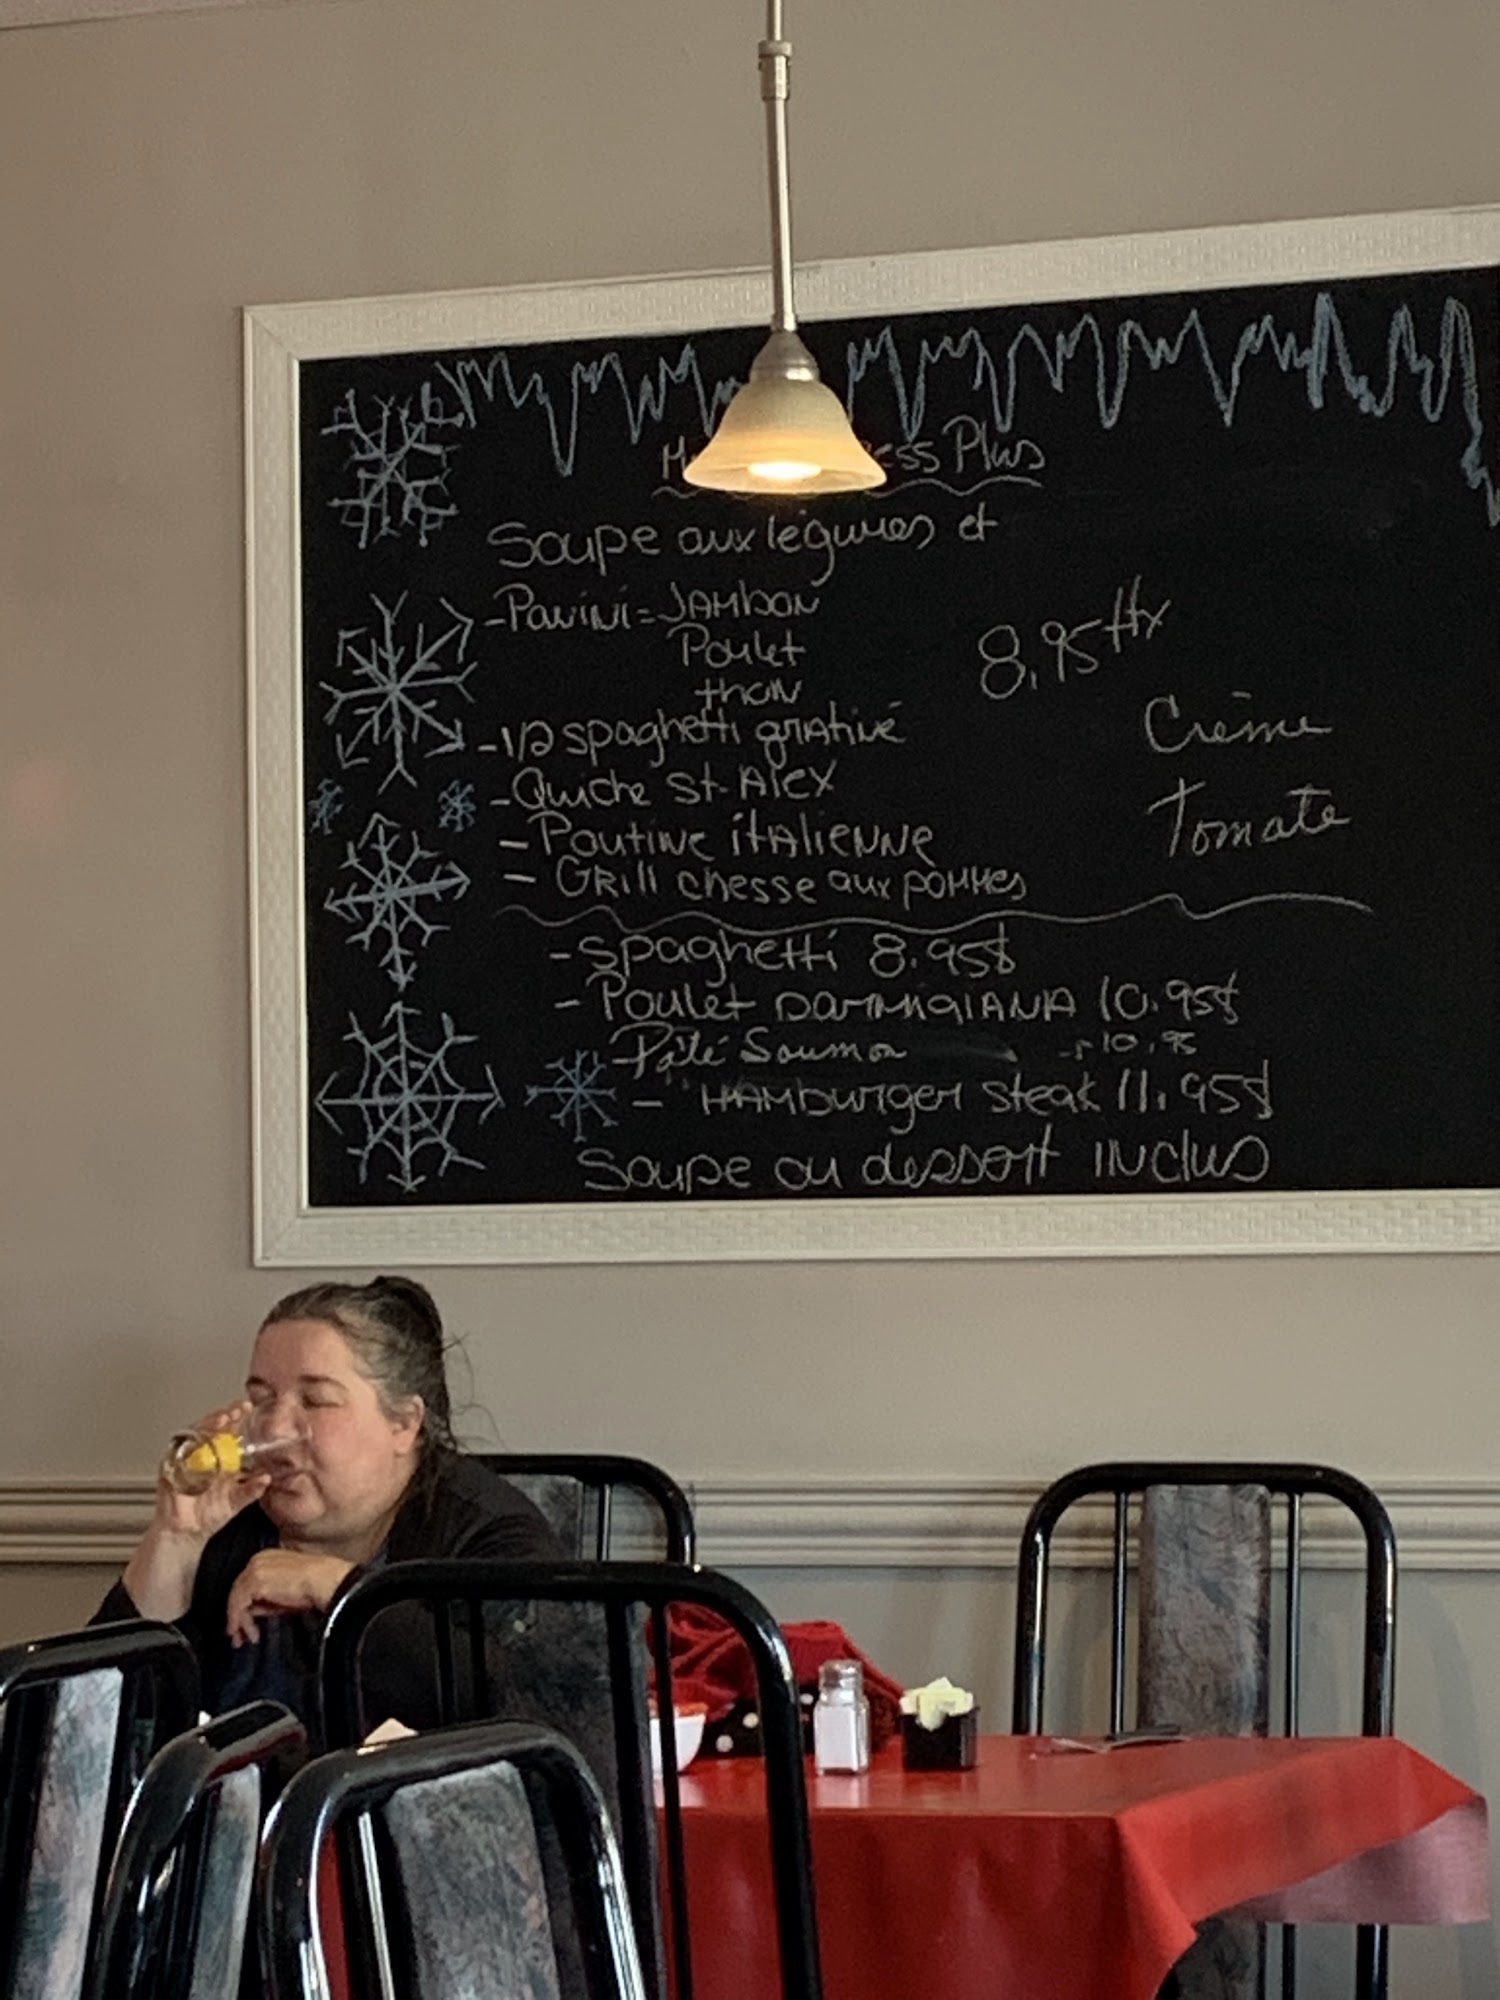 ess Plus
Soupe aux légumes et
- Panini = Jambon
Poulet
thon
8.95 + tx
- 1/2 spaghetti gratiné
Crème
Tomate
- Quiche St-Alex
- Poutine italienne
- Grill chesse aux pommes
- Spaghetti 8.95$
- Poulet parmigiana 10.95$
- Pâté Saumon 10.95
- Hamburger steak 11.95$
Soupe ou dessert inclus